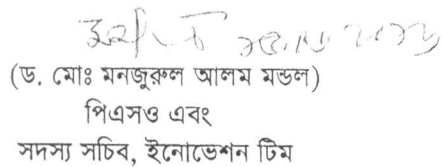 (ড. মোঃ মনজুরুল আলম মন্ডল)
পিএসও এবং
সদস্য সচিব, ইনোভেশন টিম